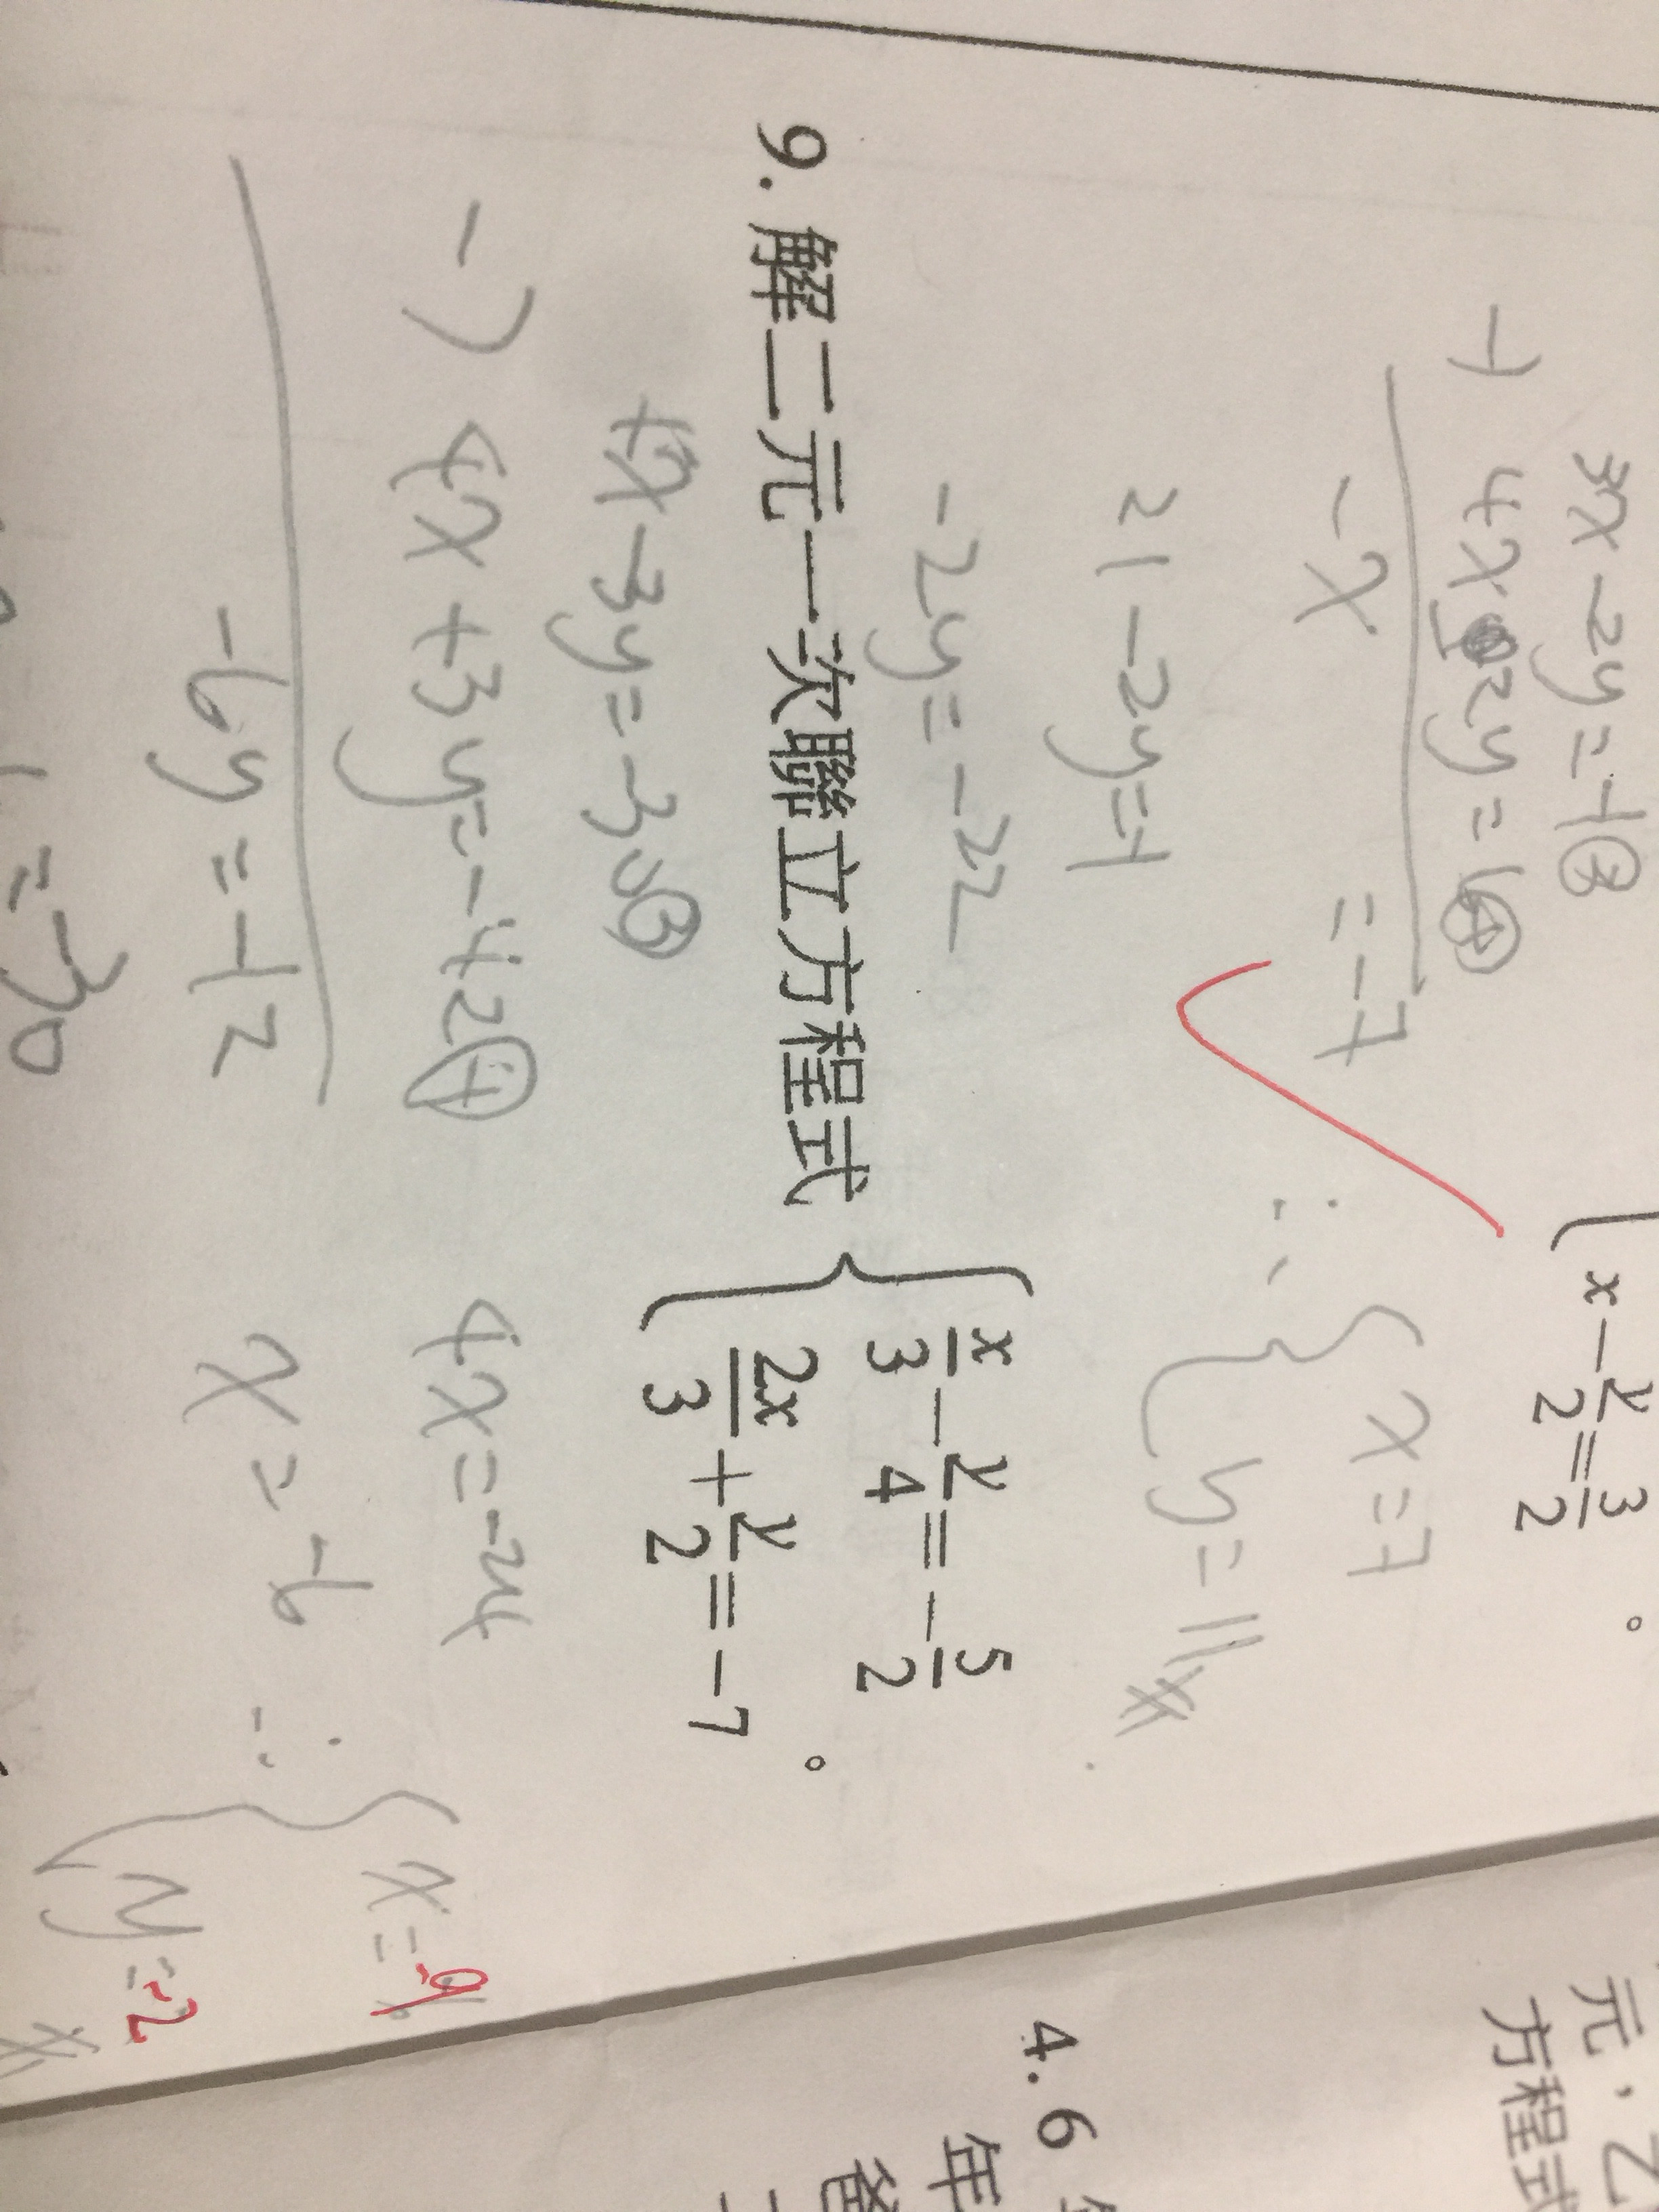 3x-2y=-1③
x-y/2=3/2。
-) 4x-2y=6④
-x =-7
21-2y=-1
-2y=-22
∴{x=7
y=11
9. 解二元一次聯立方程式{x/3-y/4=-5/2
2x/3+y/2=-7。
4x-3y=-30③
-) 4x+3y=-42④
-6y=-12
4x=-24
x=-6
∴{x=-9
y=-2
=-30
4. 6
年
爸
元，乙
方程式